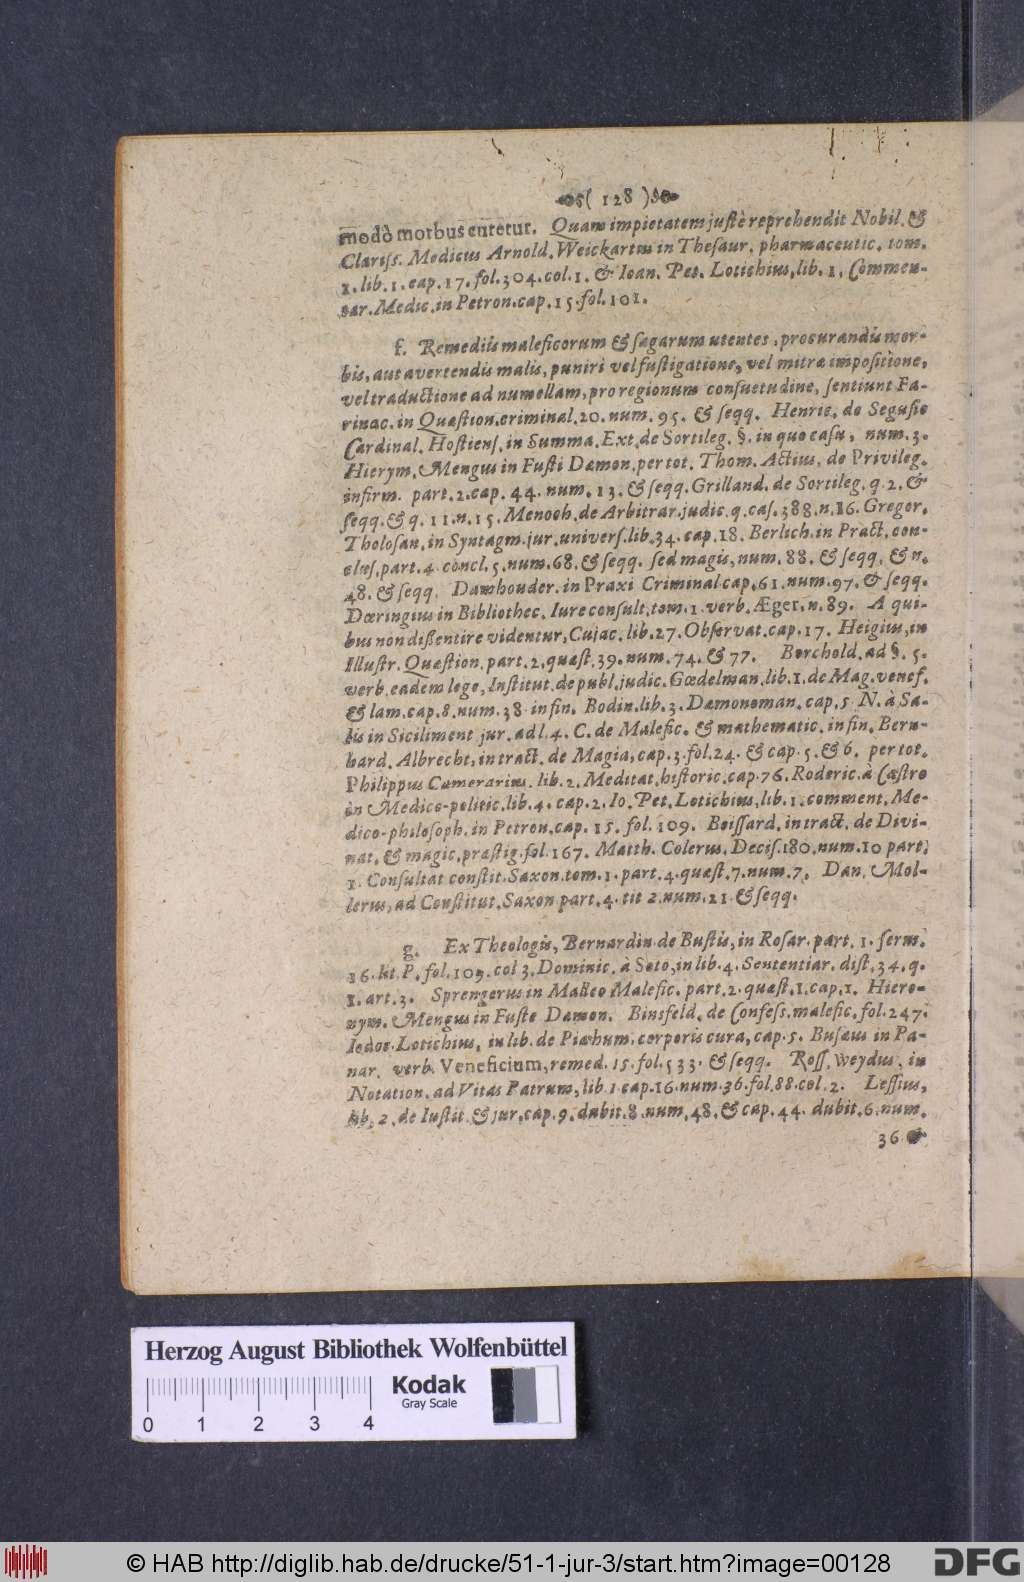 ( 128 )
modò morbus curetur. Quam impietatem justè reprehendit Nobil. &
Clariss. Medicus Arnold. Weickartus in Thesaur. pharmaceutic. tom.
1. lib. 1. cap. 17. fol. 304. col. 1. & Ioan. Pet. Lotichius, lib. 1. Commen-
tar. Medic. in Petron. cap. 15. fol. 101.
f. Remediis maleficorum & sagarum utentes, procurandis mor-
bis, aut avertendis malis, puniri vel fustigatione, vel mitræ impositione,
vel traductione ad numellam, pro regionum consuetudine, sentiunt Fa-
rinac. in Quæstion. criminal. 20. num. 95. & seqq. Henric. de Segusio
Cardinal. Hostiens. in Summa. Ext. de Sortileg. §. in quo casu, num. 3.
Hierym. Mengus in Fusti Dæmon. per tot. Thom. Actius, de Privileg.
infirm. part. 2. cap. 44. num. 13. & seqq. Grilland. de Sortileg. q. 2. &
seqq. & q. 11. n. 15. Menoch. de Arbitrar. judic. q. cas. 388. n. 16. Gregor.
Tholosan. in Syntagm. jur. univers. lib. 34. cap. 18. Berlich. in Pract. con-
clus. part. 4. concl. 5. num. 68. & seqq. sed magis, num. 88. & seqq. & n.
48. & seqq. Damhouder. in Praxi Criminal cap. 61. num. 97. & seqq.
Dœringius in Bibliothec. Iureconsult. tom. 1. verb. Æger. n. 89. A qui-
bus non dißentire videntur, Cujac. lib. 27. Observat. cap. 17. Heigius, in
Illustr. Quæstion. part. 2. quæst. 39. num. 74. & 77. Borchold. ad §. 5.
verb. eadem lege, Institut. de publ. judic. Gœdelman. lib. 1. de Mag. venef.
& lam. cap. 8. num. 38 in fin. Bodin. lib. 3. Dæmonoman. cap. 5 N. à Sa-
lis in Siciliment jur. ad l. 4. C. de Malefic. & mathematic. in fin. Bern-
hard. Albrecht, in tract. de Magia, cap. 3. fol. 24. & cap. 5. & 6. per tot.
Philippus Camerarius. lib. 2. Meditat. historic. cap. 76. Roderic. à Castro
in Medico-politic. lib. 4. cap. 2. Io. Pet. Lotichius, lib. 1. comment. Me-
dico-philosoph. in Petron. cap. 15. fol. 109. Boissard. in tract. de Divi-
nat. & magic. præstig. fol. 167. Matth. Colerus. Decis. 180. num. 10 part.
1. Consultat constit. Saxon. tom. 1. part. 4. quæst. 7. num. 7. Dan. Mol-
lerus, ad Constitut. Saxon part. 4. tit 2. num. 21 & seqq.
g. Ex Theologis, Bernardin. de Bustis, in Rosar. part. 1. serm.
16. lit. P. fol. 109. col 3. Dominic. à Soto, in lib. 4. Sententiar. dist. 34. q.
1. art. 3. Sprengerus in Malleo Malefic. part. 2. quæst. 1. cap. 1. Hiero-
nym. Mengus in Fuste Dæmon. Binsfeld. de Confess. malefic. fol. 247.
Iodoc. Lotichius, in lib. de Piæhum. corporis cura, cap. 5. Busæus in Pa-
nar. verb. Veneficium, remed. 15. fol. 533. & seqq. Ross. weydus, in
Notation. ad Vitas Patrum, lib. 1 cap. 16. num. 36. fol. 88. col. 2. Lessius,
lib. 2. de Iustit. & jur. cap. 9. dubit. 8. num. 48. & cap. 44. dubit. 6. num.
36 &
Herzog August Bibliothek Wolfenbüttel
Kodak
Gray Scale
0 1 2 3 4
© HAB http://diglib.hab.de/drucke/51-1-jur-3/start.htm?image=00128
DFG